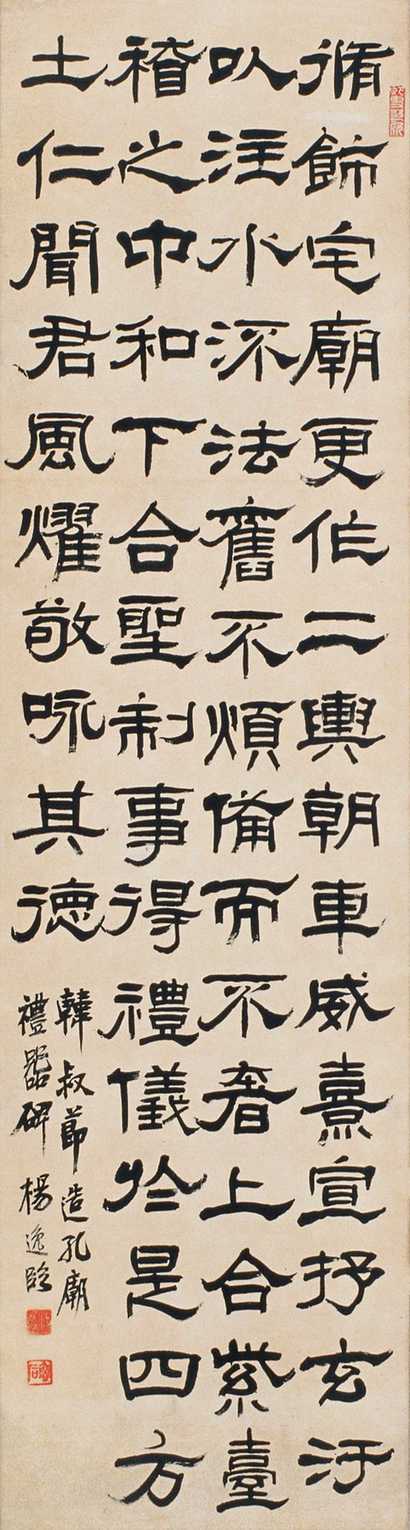 脩飾宅廟更作二輿朝車威熹宣抒玄汙
以注水流法舊不煩備而不奢上合紫臺
稽之中和下合聖制事得禮儀於是四方
土仁聞君風燿敬咏其德
韓叔節造孔廟
禮器碑 楊逸臨